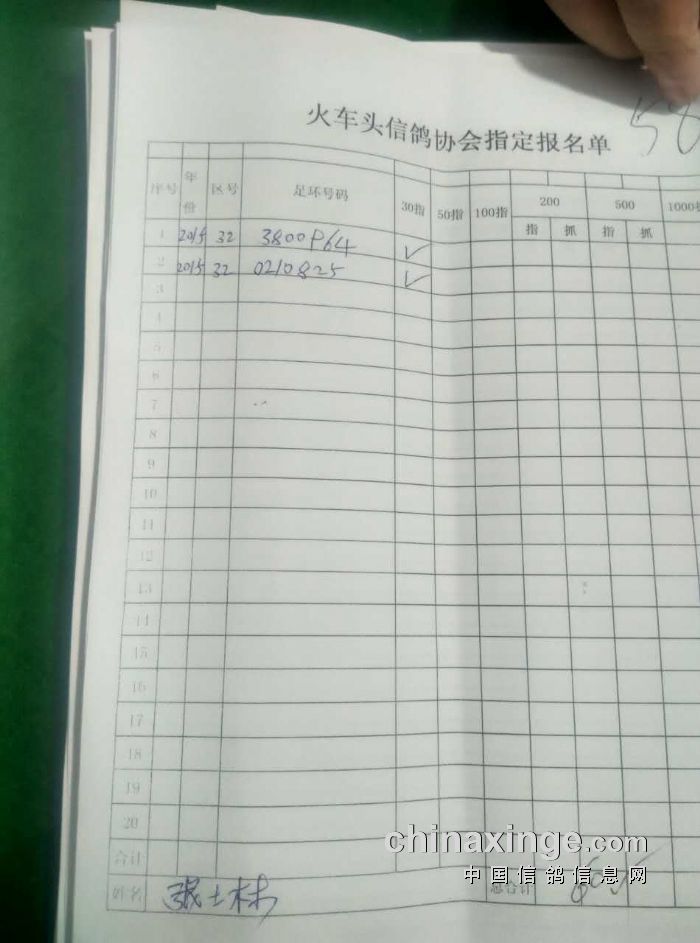 58
火车头信鸽协会指定报名单
序号 年份 区号 足环号码 30指 50指 100指 200 500 1000指
指 抓 指 抓
1 2015 32 3800P64 ✓
2 2015 32 0210825 ✓
3
4
5
6
7
8
9
10
11
12
13
14
15
16
17
18
19
20
合计
姓名 张士林 总合计 60
chinaxinge.com
中国信鸽信息网